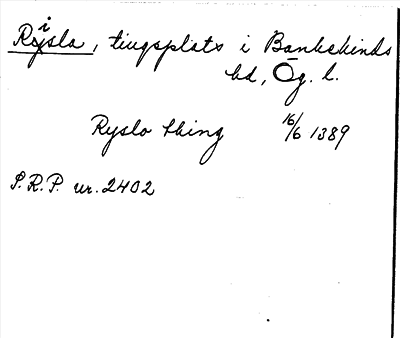 Risla, tingsplats i Bankekinds
hd, Ög. l.
Ryslo thing 16/6 1389
S.R.P. nr. 2402